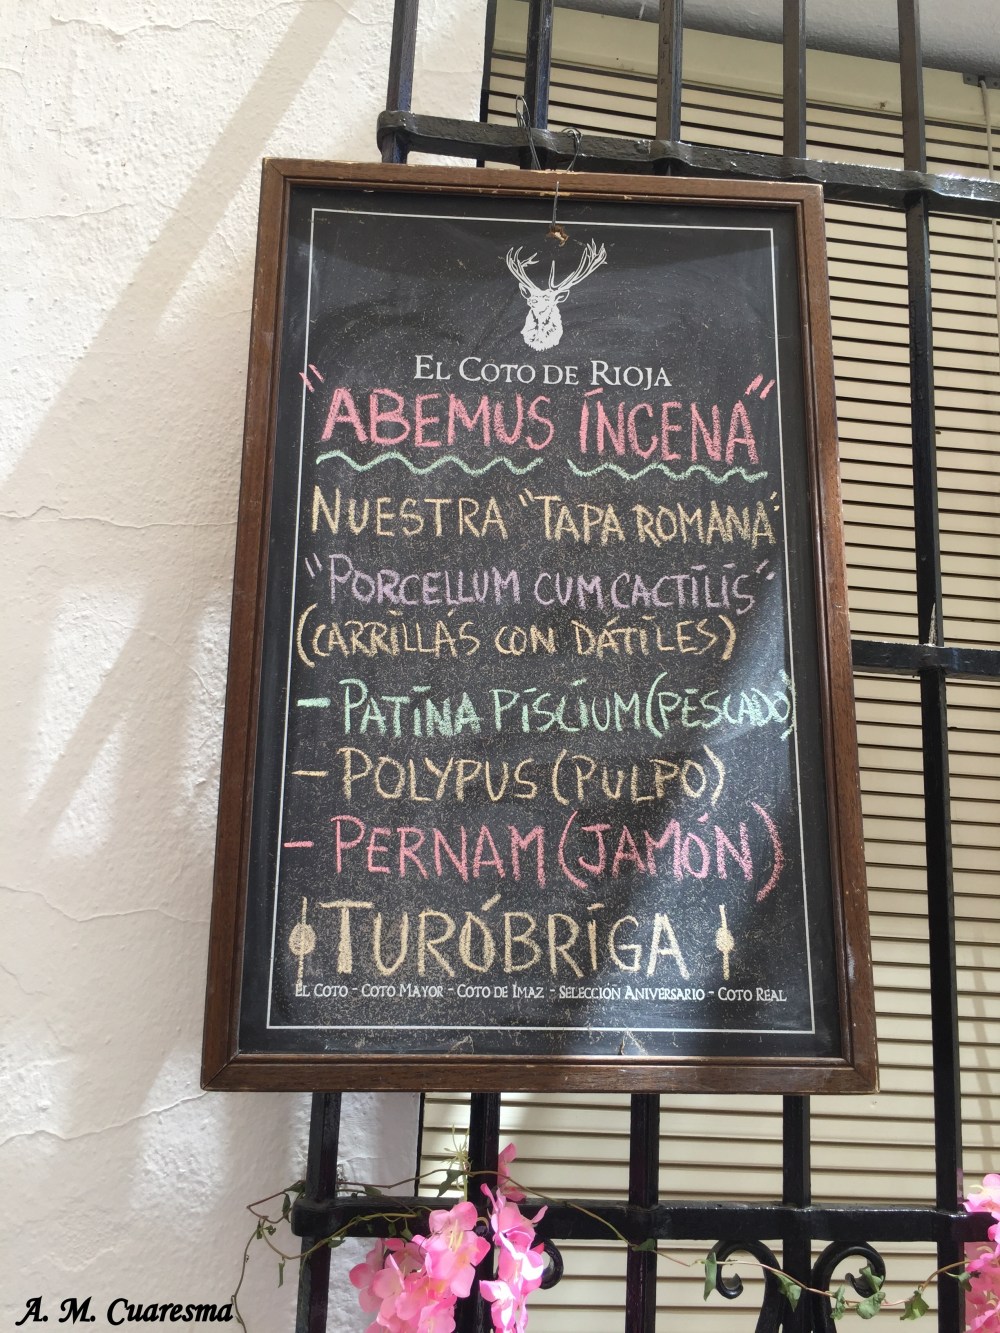 EL COTO DE RIOJA
"ABEMUS INCENA"
NUESTRA "TAPA ROMANA"
"PORCELLUM CUM CACTILIS"
(CARRILLÁS CON DÁTILES)
- PATINA PISCIUM (PESCADO)
- POLYPUS (PULPO)
- PERNAM (JAMÓN)
TURÓBRIGA
EL COTO - COTO MAYOR - COTO DE IMAZ - SELECCIÓN ANIVERSARIO - COTO REAL
A. M. Cuaresma